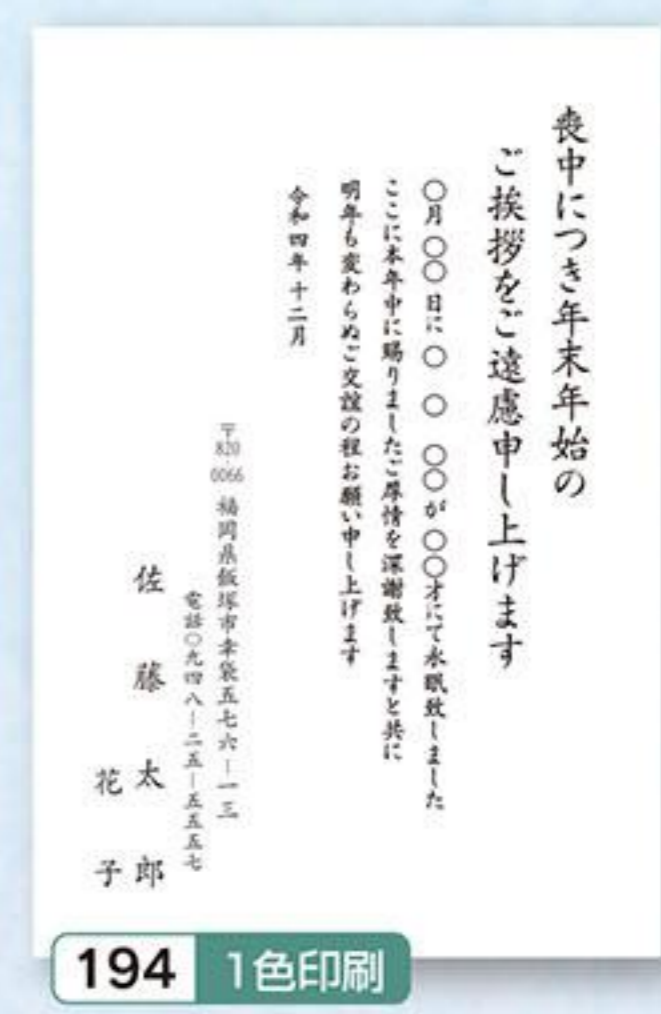 喪中につき年末年始の
ご挨拶をご遠慮申し上げます
〇月〇〇日に〇　〇　〇〇が〇〇才にて永眠致しました
ここに本年中に賜りましたご厚情を深謝致しますと共に
明年も変わらぬご交誼の程お願い申し上げます
令和四年十二月
〒820-0066 福岡県飯塚市幸袋五七六ー一三
電話〇九四八ー二五ー五五五七
佐藤太郎
花子
194 1色印刷